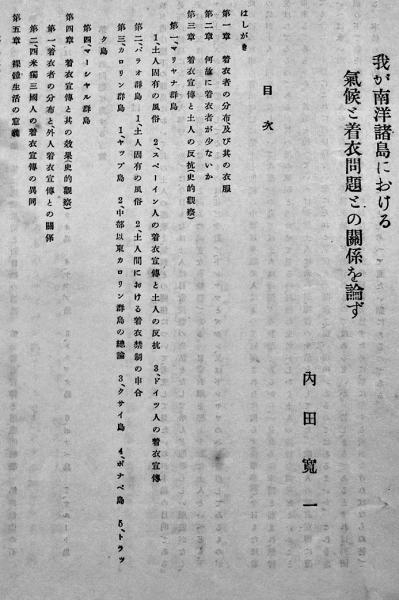 我が南洋諸島における
氣候と着衣問題との關係を論ず
內田寬一
目次
はしがき
第一章 着衣者の分布、及び其の衣服
第二章 何故に着衣者が少ないか
第三章 着衣宣傳と土人の反抗(史的觀察)
第一、マリヤナ群島
1、土人固有の風俗 2、スペーイン人の着衣宣傳と土人の反抗 3、ドイツ人の着衣宣傳
第二、パラオ群島 1、土人固有の風俗 2、土人間における着衣禁制の申合
第三、カロリン群島 1、ヤップ島 2、中部以東カロリン群島の總論 3、クサイ島 4、ポナペ島 5、トラッ
ク島
第四、マーシヤル群島
第四章 着衣宣傳と其の效果史的觀察)
第一、着衣者の分布と、外人着衣宣傳との關係
第二、四米獨三國人の着衣宣傳の異同
第五章 裸體生活の意義